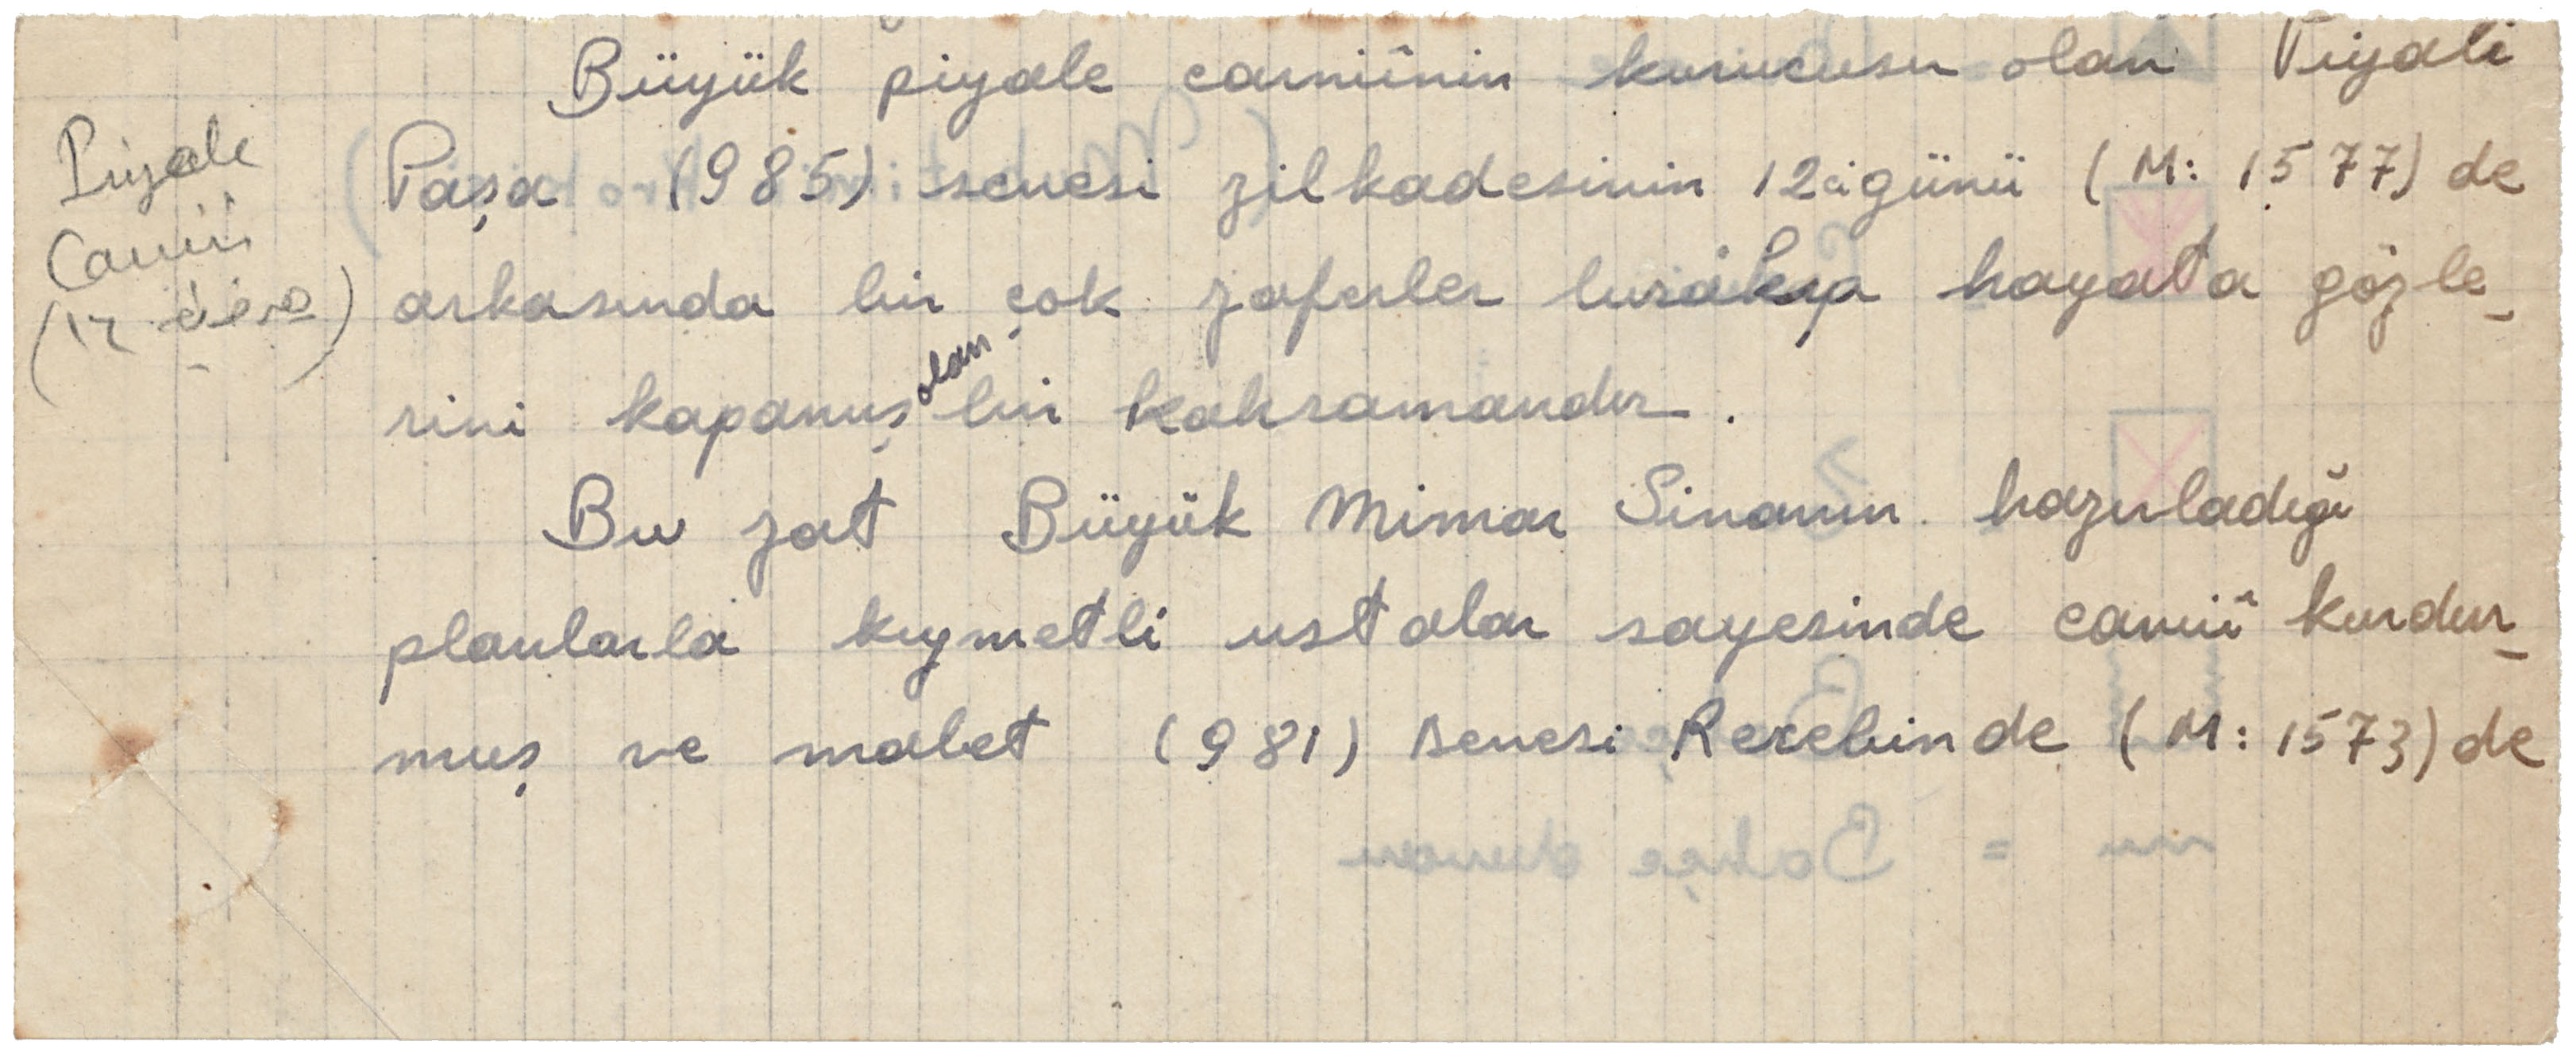 Büyük piyale camiînin kurucusu olan Piyali
Paşa (985) senesi zilkadesinin 12ci günü (M: 1577) de
arkasında bir çok zaferler bırakıp hayata gözle_
rini kapamış olan bir kahramandır.
Bu zat Büyük Mimar Sinanın hazırladığı
planlarla kıymetli ustalar sayesinde camiî kurdur_
muş ve mabet (981) senesi Recebinde (M: 1573) de
Piyale
Camii